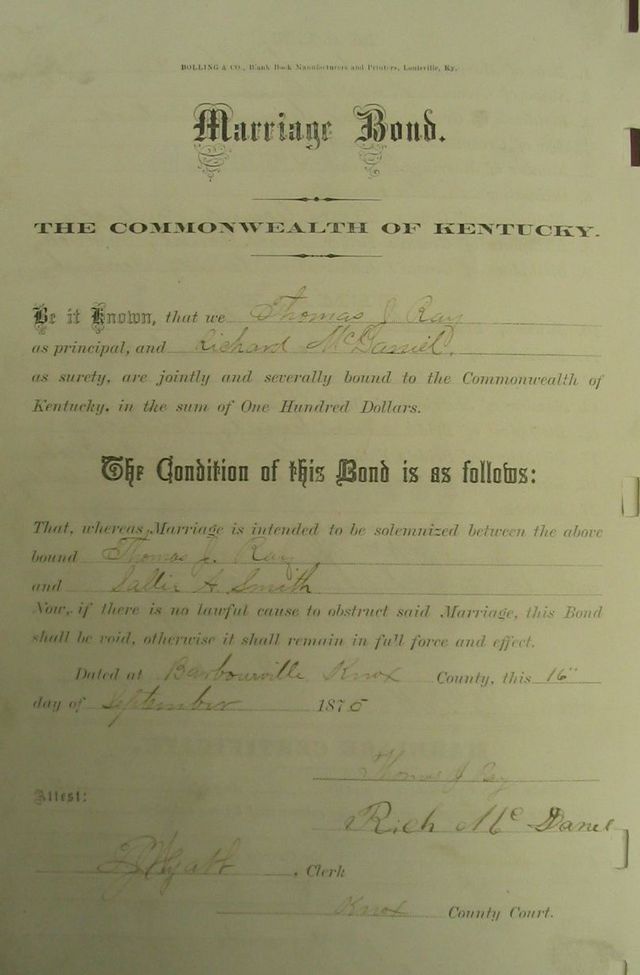 BOLLING & CO., Blank Book Manufacturers and Printers, Louisville, Ky.
Marriage Bond.
THE COMMONWEALTH OF KENTUCKY.
Be it Known, that we Thomas J. Ray
as principal, and Richard McDaniel,
as surety, are jointly and severally bound to the Commonwealth of
Kentucky, in the sum of One Hundred Dollars.
The Condition of this Bond is as follows:
That, whereas, Marriage is intended to be solemnized between the above
bound Thomas J. Ray
and Sallie A Smith
Now, if there is no lawful cause to obstruct said Marriage, this Bond
shall be void, otherwise it shall remain in full force and effect.
Dated at Barbourville Knox County, this 16"
day of September 1875
Thomas J Ray
Attest:
Rich Mc Daniel
, Clerk
Knox County Court.